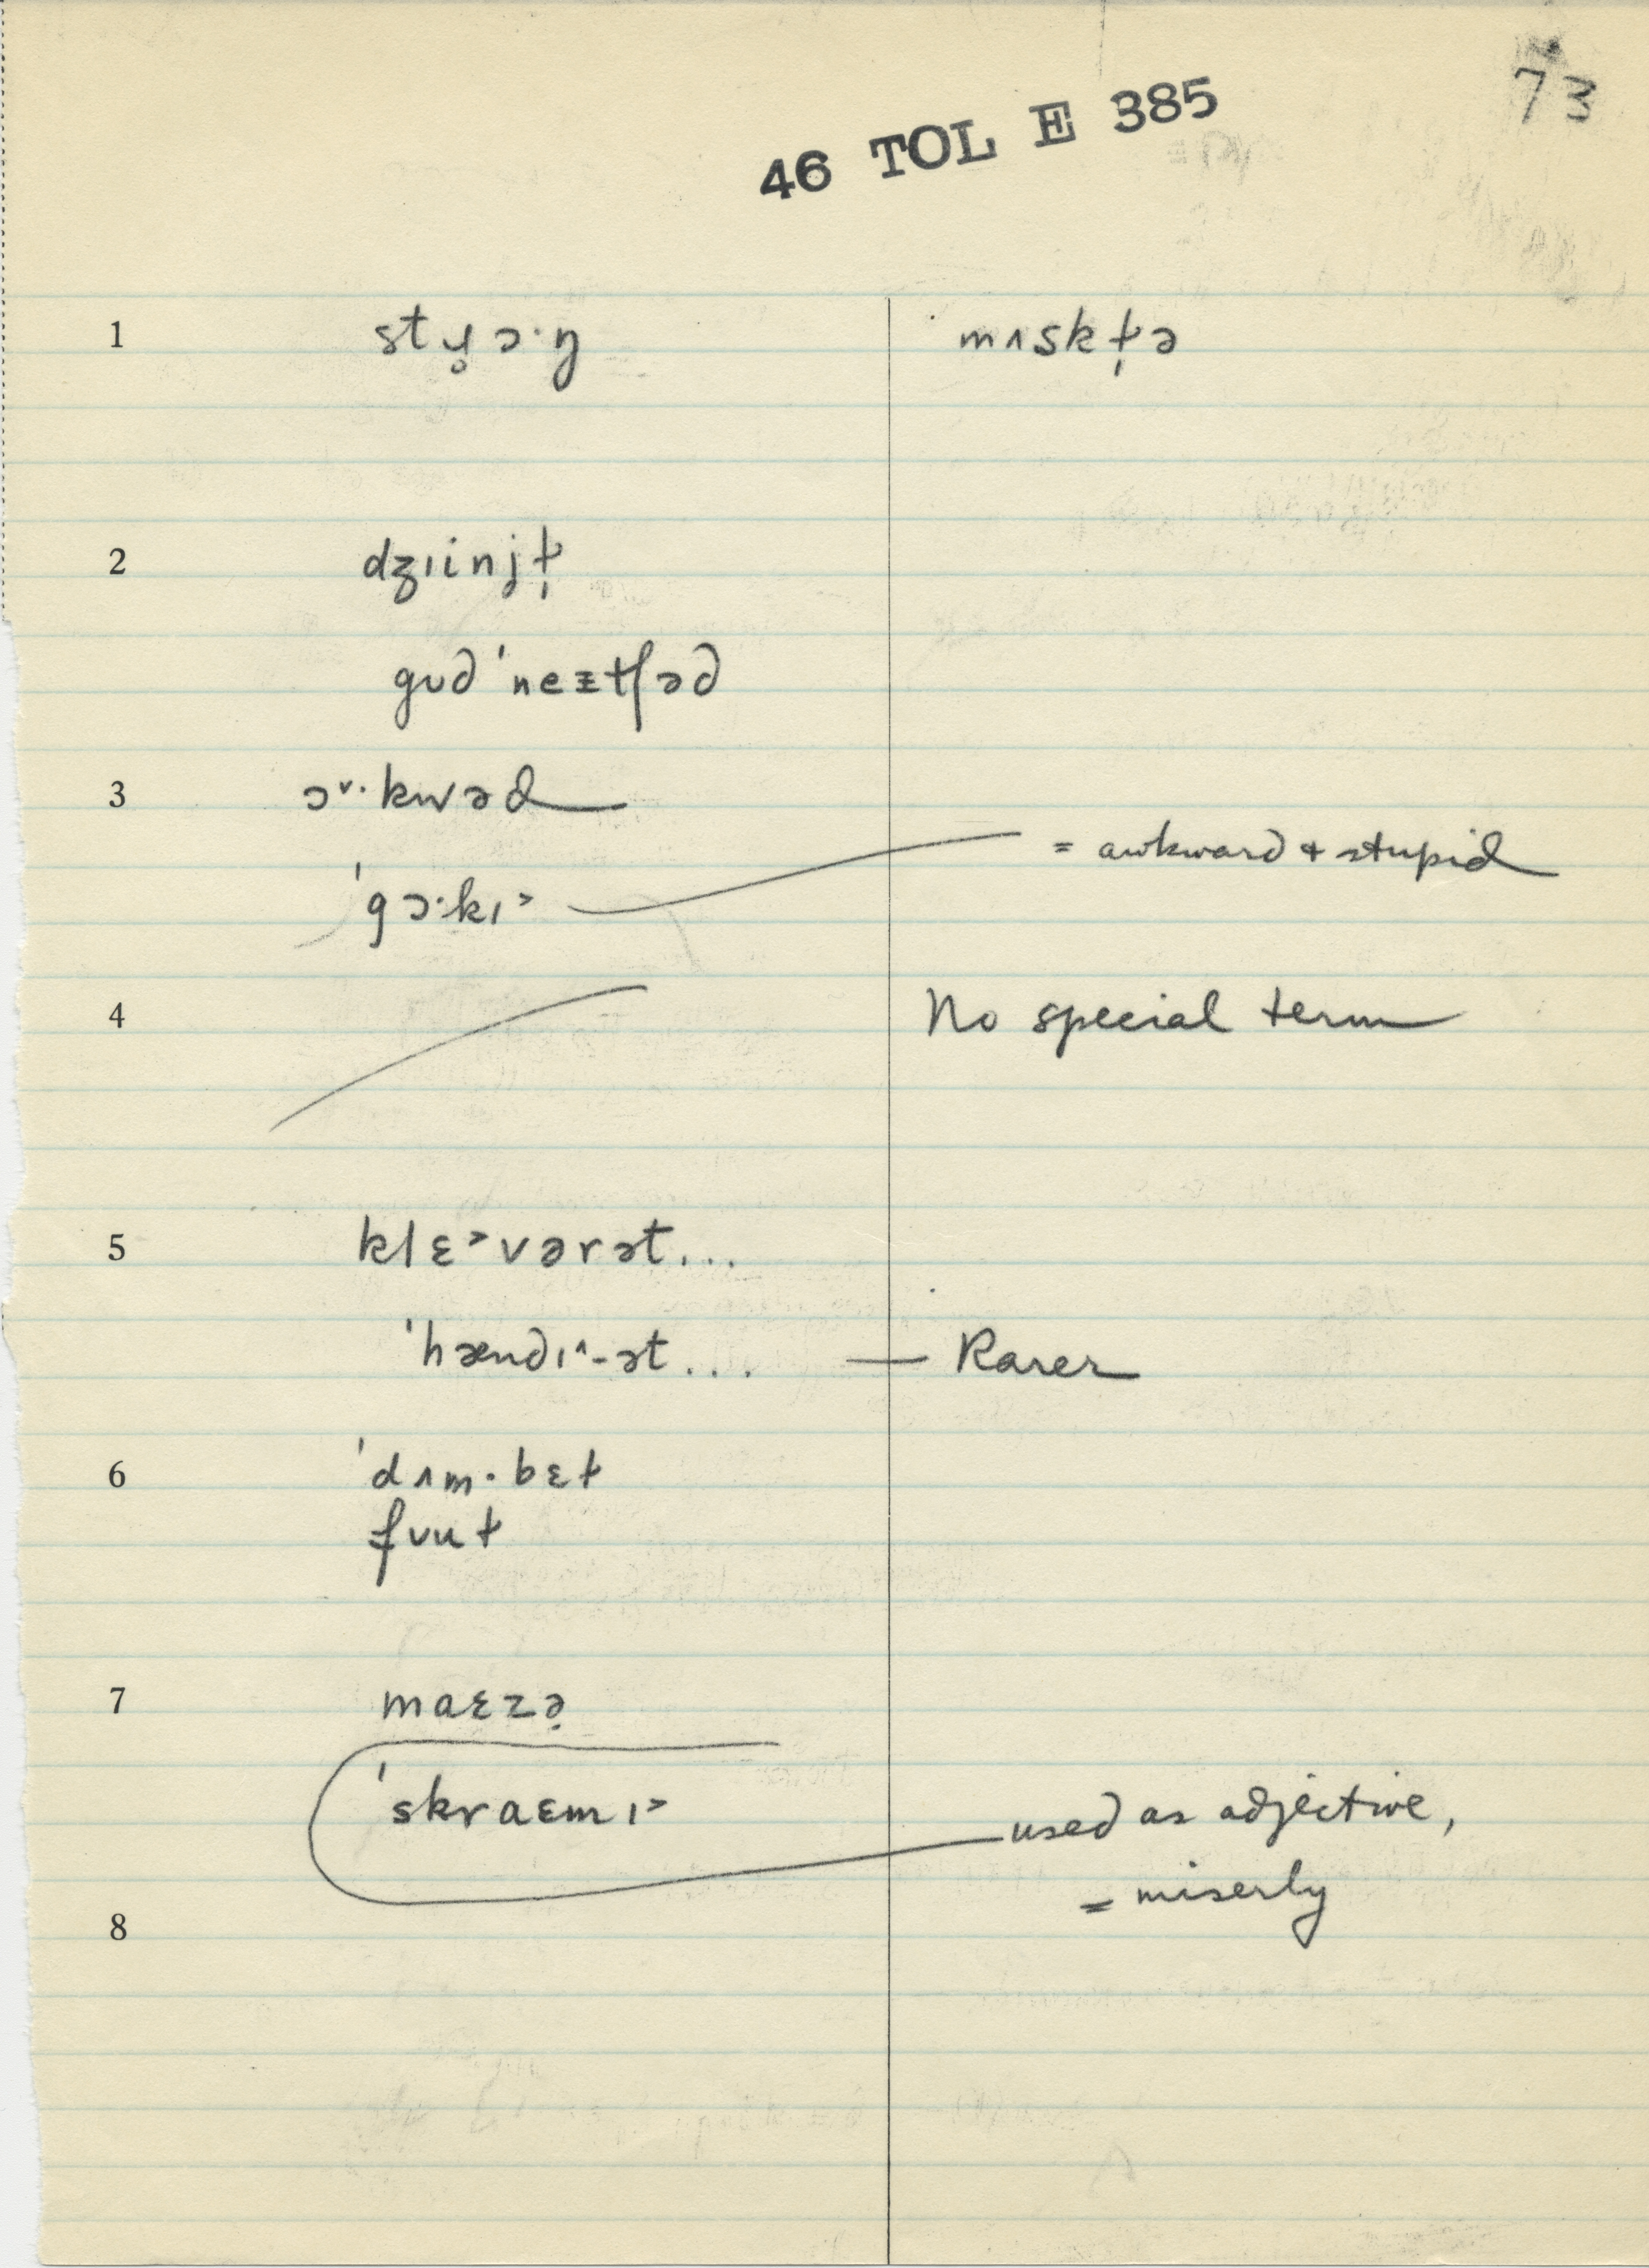 73
46 TOL E 385
1 stɹ̥ɔ·ŋ mʌskɫ̩ə
2 dʒɪinjɫ̩
gʊd 'neɪtʃəd
3 ɔ˅·kwəd
= awkward + stupid
'gɔ·kɪ˃
4 No special term
5 klɛ˃vərət...
'hændɪ˄-ət... — Rarer
6 'dʌm·bɛɫ
fʊuɫ
7 maɛzə̣
'skraɛmɪ˃ used as adjective,
= miserly
8